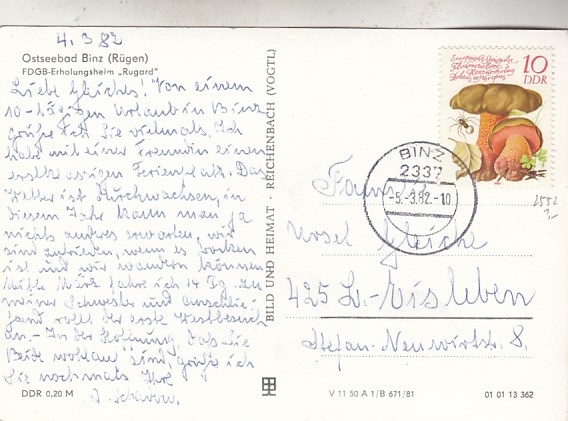 4.3 82
Ostseebad Binz (Rügen)
FDGB-Erholungsheim „Rugard"
Liebe Gleiches! Von einem
10-tägigen Urlaub in Binz
grüße ich Sie vielmals. Ich
habe mit einer Freundin einen
Ferienplatz. Das
Wetter ist durchwachsen, in
diesem Jahr kann man ja
nichts anderes erwarten, wir
sind zufrieden, wenn es trocken
ist und wir wandern können
Mitte März fahre ich 14 Tg. zu
meiner Schwester und anschlie-
ßend rollt der erste Westbesuch
an.- In der Hoffnung, daß Sie
Beide wohlauf sind, grüße ich
Sie nochmals Ihre
DDR 0,20 M
BILD UND HEIMAT · REICHENBACH (VOGTL)
V 11 50 A 1/B 671/81
01 01 13 362
10
DDR
BINZ
2337
-5.-3.82.-10
Familie
Ursel Gleiche
425 L.-Eisleben
Stefan-Neuwirtstr. 8.